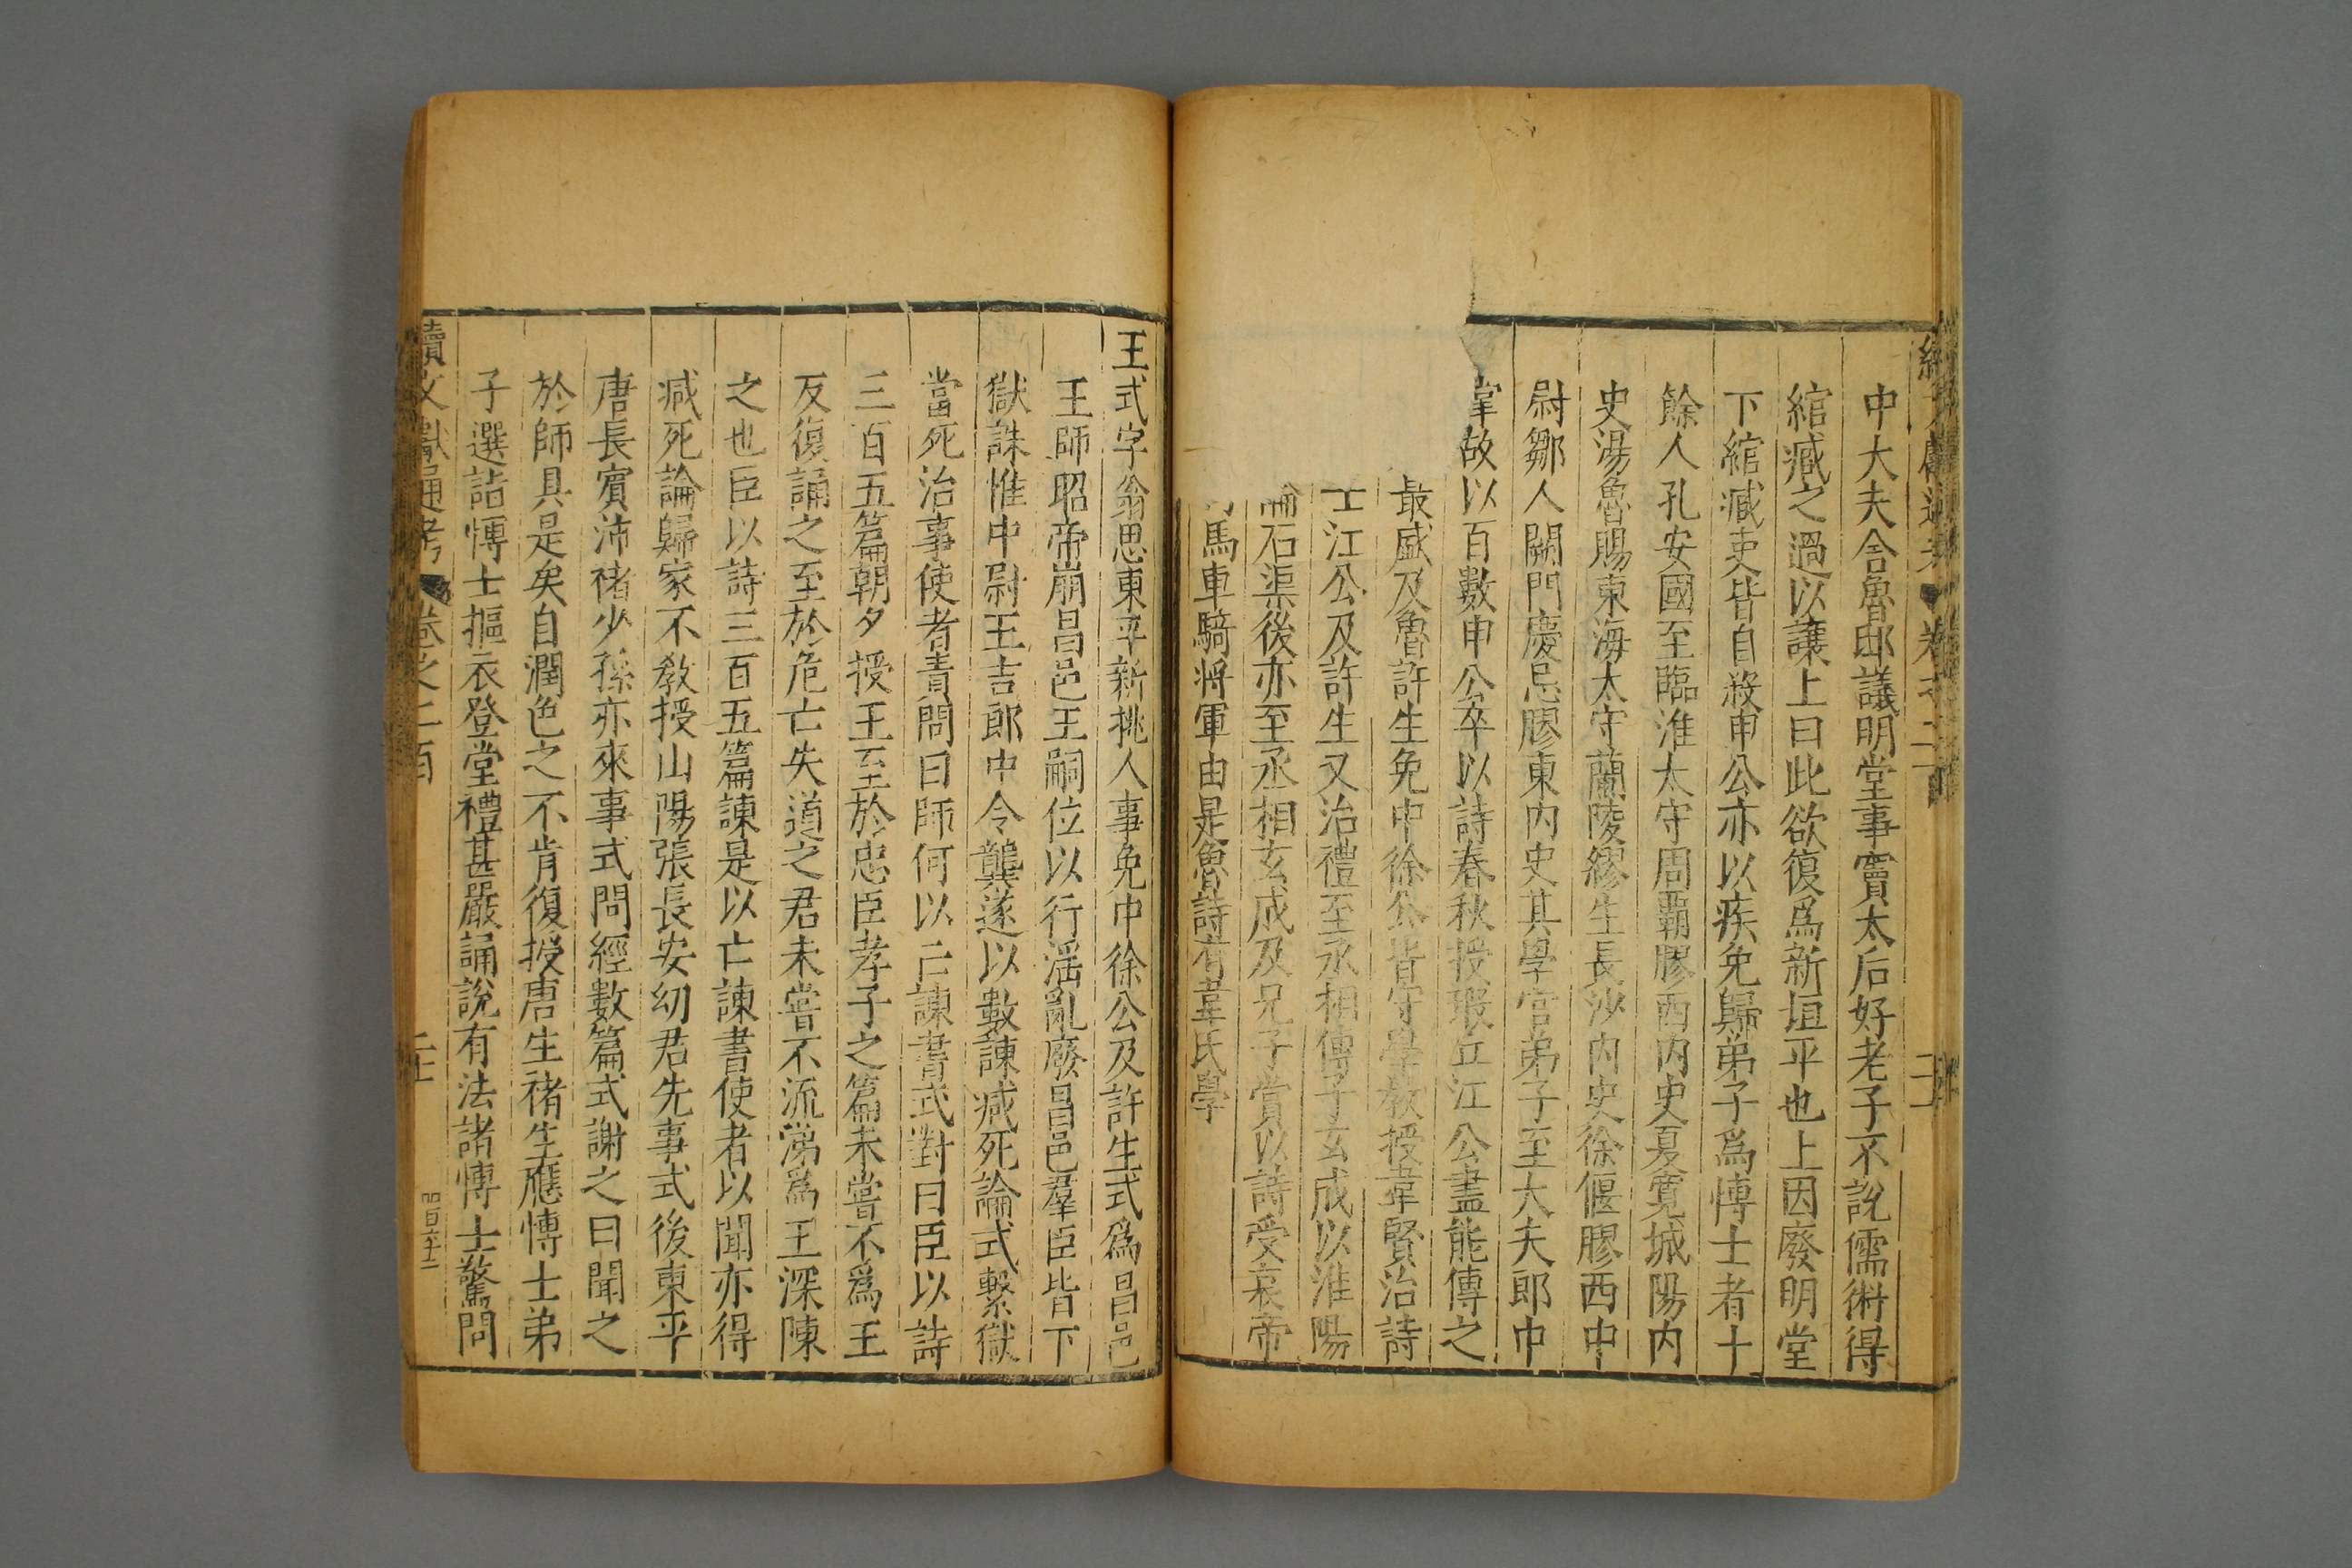 中大夫舍魯邸議明堂事竇太后好老子不說儒術得
綰臧之過以讓上曰此欲復爲新垣平也上因廢明堂
下綰臧吏皆自殺申公亦以疾免歸弟子爲博士者十
餘人孔安國至臨淮太守周霸膠西內史夏寬城陽內
史湯魯賜東海太守蘭陵繆生長沙內史徐偃膠西中
尉鄒人闕門慶忌膠東內史其學官弟子至大夫郎中
掌故以百數申公卒以詩春秋授瑕丘江公盡能傳之
最盛及魯許生免中徐公皆守學教授韋賢治詩
江公及許生又治禮至丞相傳子玄成以淮陽
論石渠後亦至丞相玄成及兄子賞以詩受哀帝
馬車騎將軍由是魯詩有韋氏學
王式字翁思東平新桃人事免中徐公及許生式爲昌邑
王師昭帝崩昌邑王嗣位以行滛亂廢昌邑羣臣皆下
獄誅惟中尉王吉郎中令龔遂以數諫減死論式繫獄
當死治事使者責問曰師何以亡諫書式對曰臣以詩
三百五篇朝夕授王至於忠臣孝子之篇未嘗不爲王
反復誦之至於危亡失道之君未嘗不流涕爲王深陳
之也臣以詩三百五篇諫是以亡諫書使者以聞亦得
減死論歸家不教授山陽張長安幼君先事式後東平
唐長賓沛褚少孫亦來事式問經數篇式謝之曰聞之
於師具是矣自潤色之不肯復授唐生褚生應博士弟
子選詣博士摳衣登堂禮甚嚴誦說有法諸博士驚問
續文獻通考 卷之二百